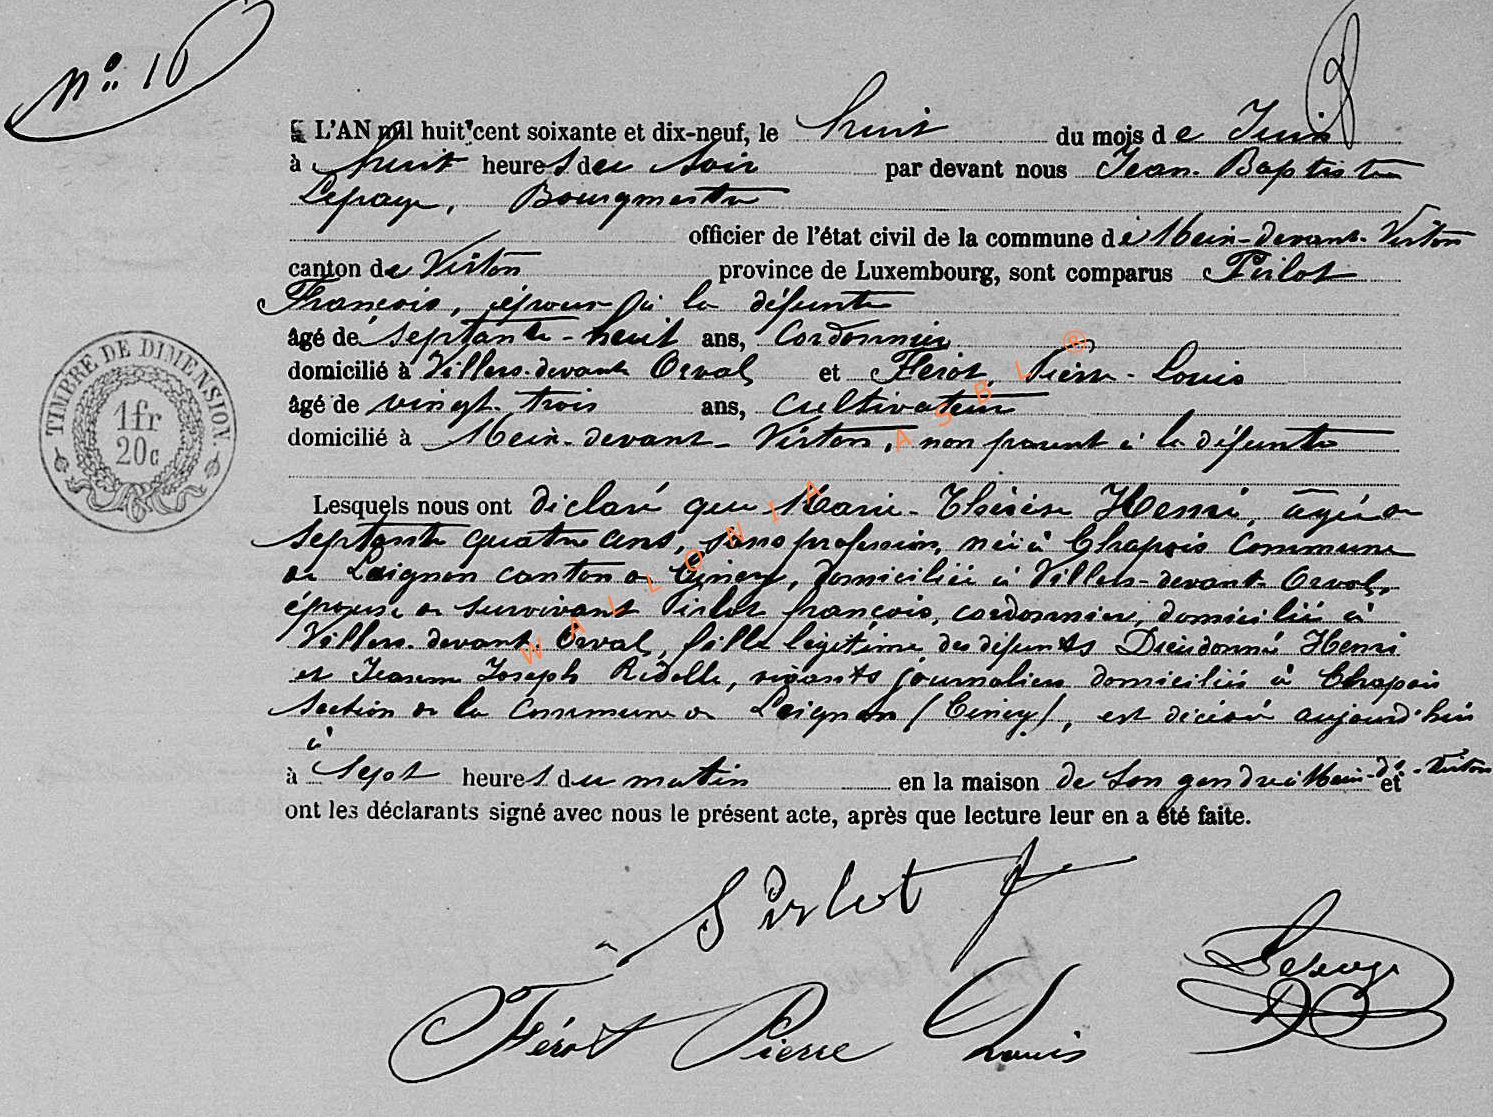 N° 10
L'AN mil huit cent soixante et dix-neuf, le huit du mois de Juin
à huit heures du soir par devant nous Jean-Baptiste
Lepage, Bourgmestre
officier de l'état civil de la commune de Meix-devant-Virton
canton de Virton province de Luxembourg, sont comparus Pirlot
François, époux à la défunte
âgé de septante-huit ans, Cordonnier
domicilié à Villers-devant Orval et Férot, Pierre-Louis
âgé de vingt-trois ans, Cultivateur
domicilié à Meix-devant-Virton, non parent à la défunte
TIMBRE DE DIMENSION
1fr
20c
Lesquels nous ont déclaré que Marie-Thérèse Henri, âgée de
septante quatre ans, sans profession, née à Chapois Commune
de Leignon canton de Ciney, domiciliée à Villers-devant-Orval,
épouse de survivant Pirlot françois, cordonnier, domicilié à
Villers-devant Orval, fille légitime des défunts Dieudonné Henri
et Jeanne Joseph Ridelle, vivants journaliers domiciliés à Chapois
Section de la Commune de Leignon (Ciney), est décédée aujourd'hui
à
à Sept heures du matin en la maison de son gendre à Meix-dt-Virton et
ont les déclarants signé avec nous le présent acte, après que lecture leur en a été faite.
WALLONIA ASBL ®
Pirlot f
Férot Pierre Louis
Lepage